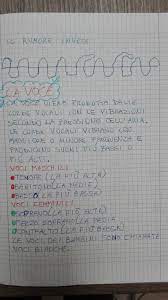 IL RUMORE INVECE
LA VOCE
LA VOCE VIENE PRODOTTA DALLE
CORDE VOCALI CON LE VIBRAZIONI
DELL'ARIA
LE CORDE VOCALI VIBRANO CON
MAGGIORE O MINORE FREQUENZA E
PRODUCONO SUONI PIÙ BASSI O
PIÙ ALTI.
VOCI MASCHILI
TENORE (LA PIÙ ALTA)
BARITONO (LA MEDIA)
BASSO (LA PIÙ BASSA)
VOCI FEMMINILI
SOPRANO (LA PIÙ ALTA)
MEZZO SOPRANO (LA MEDIA)
CONTRALTO (LA PIÙ BASSA)
LE VOCI DEI BAMBINI SONO CHIAMATE
VOCI BIANCHE.